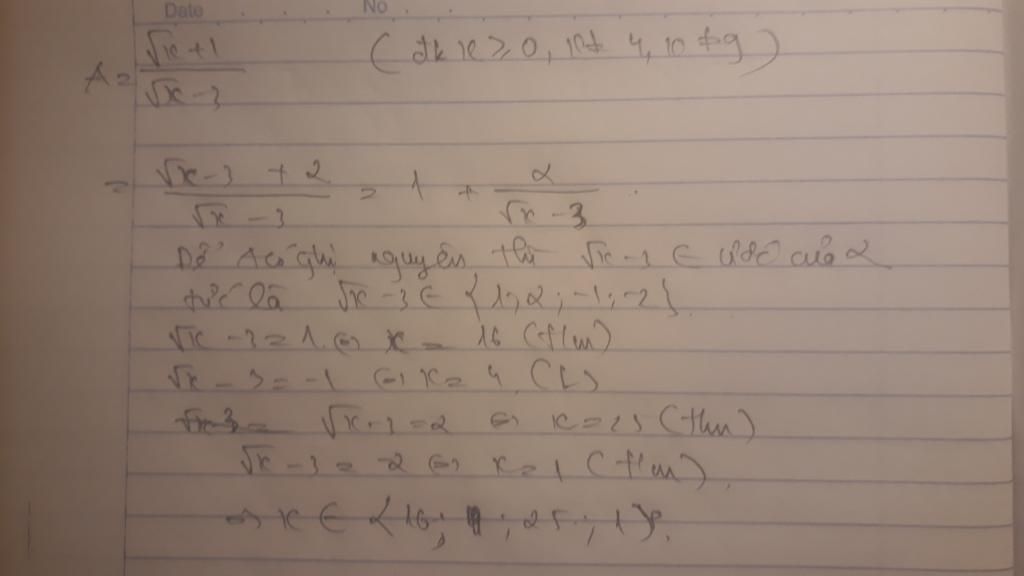 Date No
A = \frac{\sqrt{x}+1}{\sqrt{x}-3} (đk x ≥ 0, x ≠ 4, x ≠ 9)
= \frac{\sqrt{x}-3+2}{\sqrt{x}-3} = 1 + \frac{2}{\sqrt{x}-3}.
Để A có ghị nguyên thì √x - 3 ∈ ước của 2
tức là √x - 3 ∈ {1; 2; -1; -2}
√x - 3 = 1 ⇔ x = 16 (t/m)
√x - 3 = -1 ⇔ x = 4 (L)
√x - 3 = 2 ⇔ x = 25 (t/m)
√x - 3 = -2 ⇔ x = 1 (t/m)
⇒ x ∈ {16; ; 25; 1}.